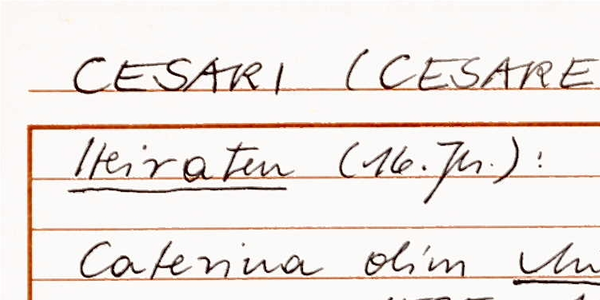 CESARI (CESARE
Heiraten (16. Jh.):
Caterina olim